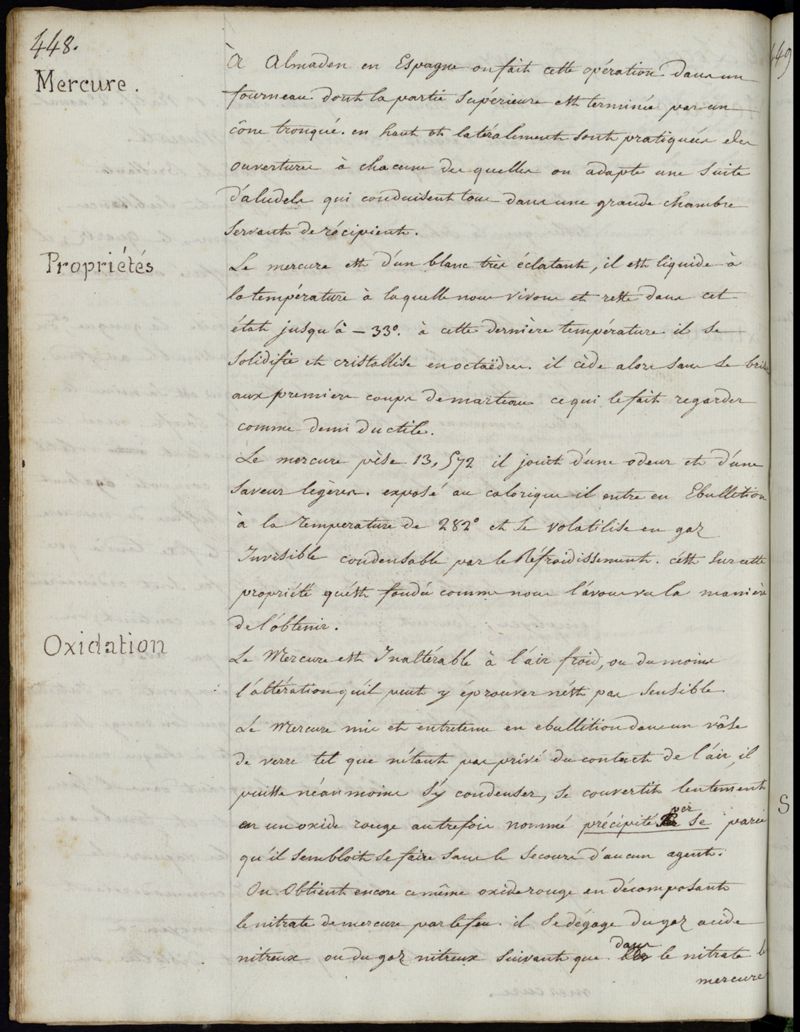 448.
Mercure.
À Almaden en Espagne on fait cette opération dans un
fourneau dont la partie Supérieure est terminée par un
cône tronqué. en haut et latéralement sont pratiquées des
ouvertures à chacune des quelles on adapte une Suite
d'aludels qui conduisent tous dans une grande chambre
Servant de récipient.
Propriétés
Le mercure est d'un blanc très éclatant, il est liquide à
la température à laquelle nous vivons et reste dans cet
état jusqu'à – 33°. à cette dernière température il se
Solidifie et cristallise en octaèdres. il cède alors sans se bris
aux premiers coups de marteau ce qui le fait regarder
comme demi ductile.
Le mercure pèse 13,572 il jouit d'une odeur et d'une
Saveur légères. exposé au calorique il entre en Ebullition
à la Température de 282° et se volatilise en gaz
Invisible condensable par le Réfroidissement. c'est Sur cette
propriété qu'est fondée comme nous l'avons vu la manière
de l'obtenir.
Oxidation
Le Mercure est Inaltérable à l'air froid, ou du moins
l'altération qu'il peut y éprouver n'est pas Sensible
Le Mercure mis et entretenu en ebullition dans un vâse
de verre tel que n'étant pas privé du contact de l'air, il
puisse néanmoins S'y condenser, se convertit lentement
en un oxide rouge autrefois nommé précipité per Se parce
qu'il Sembloit se faire Sans le Secours d'aucun agent.
On Obtient encore ce même oxide rouge en décomposant
le nitrate de mercure par le feu. il Se dégage du gaz acide
nitreux ou du gaz nitreux Suivant que dans le nitrate de
mercure
449
S